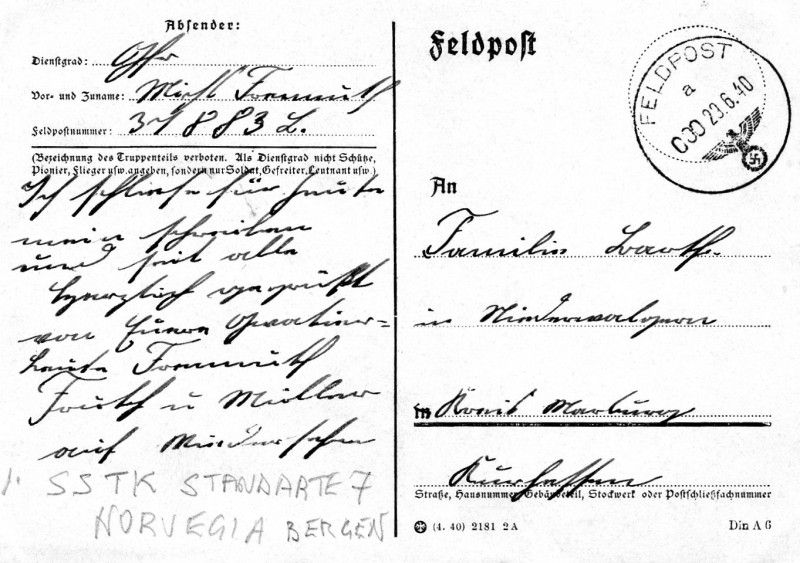 Absender:
Dienstgrad: Gfr
Vor- und Zuname: Michl Fremuth
Feldpostnummer: 37883 L.
(Bezeichnung des Truppenteils verboten. Als Dienstgrad nicht Schütze,
Pionier, Flieger usw. angeben, sondern nur Soldat, Gefreiter, Leutnant usw.)
Ich schließe für heute
mein schreiben
und seit alle
herzlich gegrüßt
von Euere Quatier=
Leute Fremuth
u Müller
auf Wiedersehn
1. SS TK STANDARTE 7
NORVEGIA BERGEN
Feldpost
FELDPOST
a
000 23.6.40
An
Familie Barth.
in Niederwalgern
in Kreis Marburg
Kurhessen
Straße, Hausnummer, Gebäudeteil, Stockwerk oder Postschließfachnummer
(4. 40) 2181 2A
Din A 6